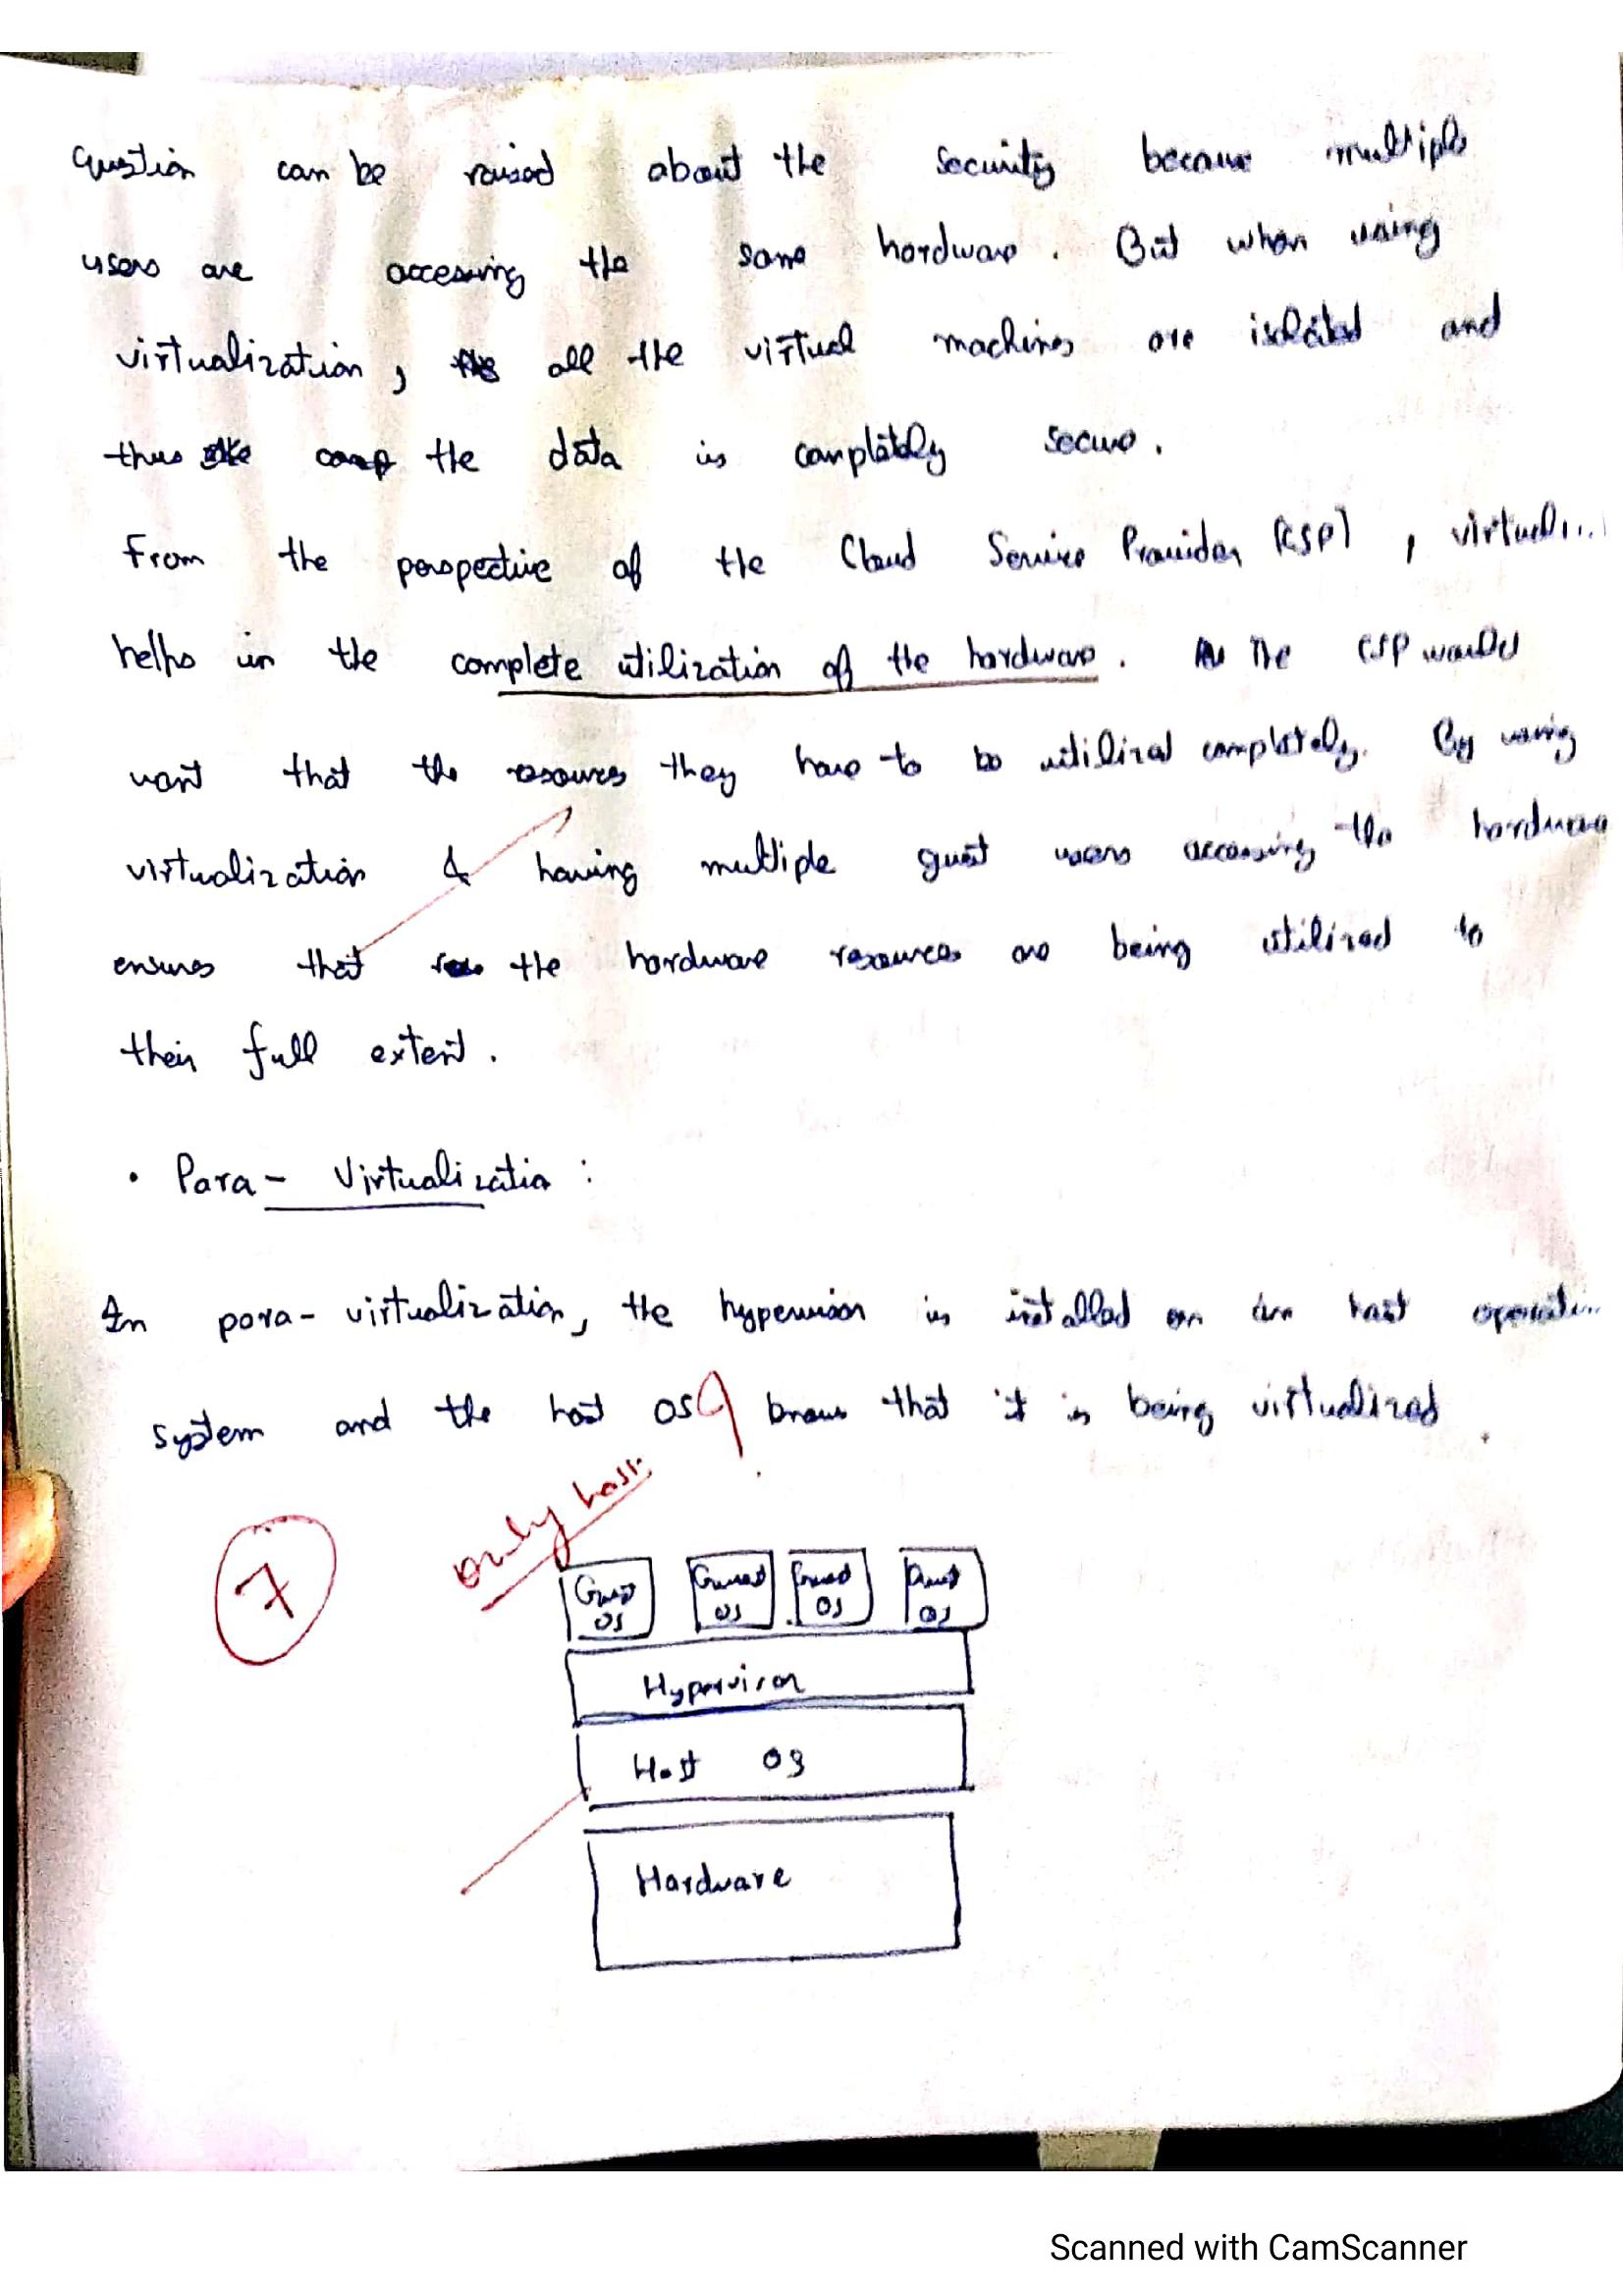 question can be raised about the security because multiple
users are accessing the same hardware. But when using
virtualization, all the virtual machines are isolated and
thus the data is completely secure.
From the perspective of the Cloud Service Provider (CSP), virtuali...
helps in the complete utilization of the hardware. The CSP would
want that the resources they have to be utilized completely. By using
virtualization & having multiple guest users accessing the hardware
ensures that the hardware resources are being utilized to
their full extent.
• Para- Virtualizatio :
In para-virtualization, the hypervisor is installed on an host operatin
system and the host OS knows that it is being virtualized.
only host
7
Guest OS Guest OS Guest OS Guest OS
Hypervisor
Host OS
Hardware
Scanned with CamScanner